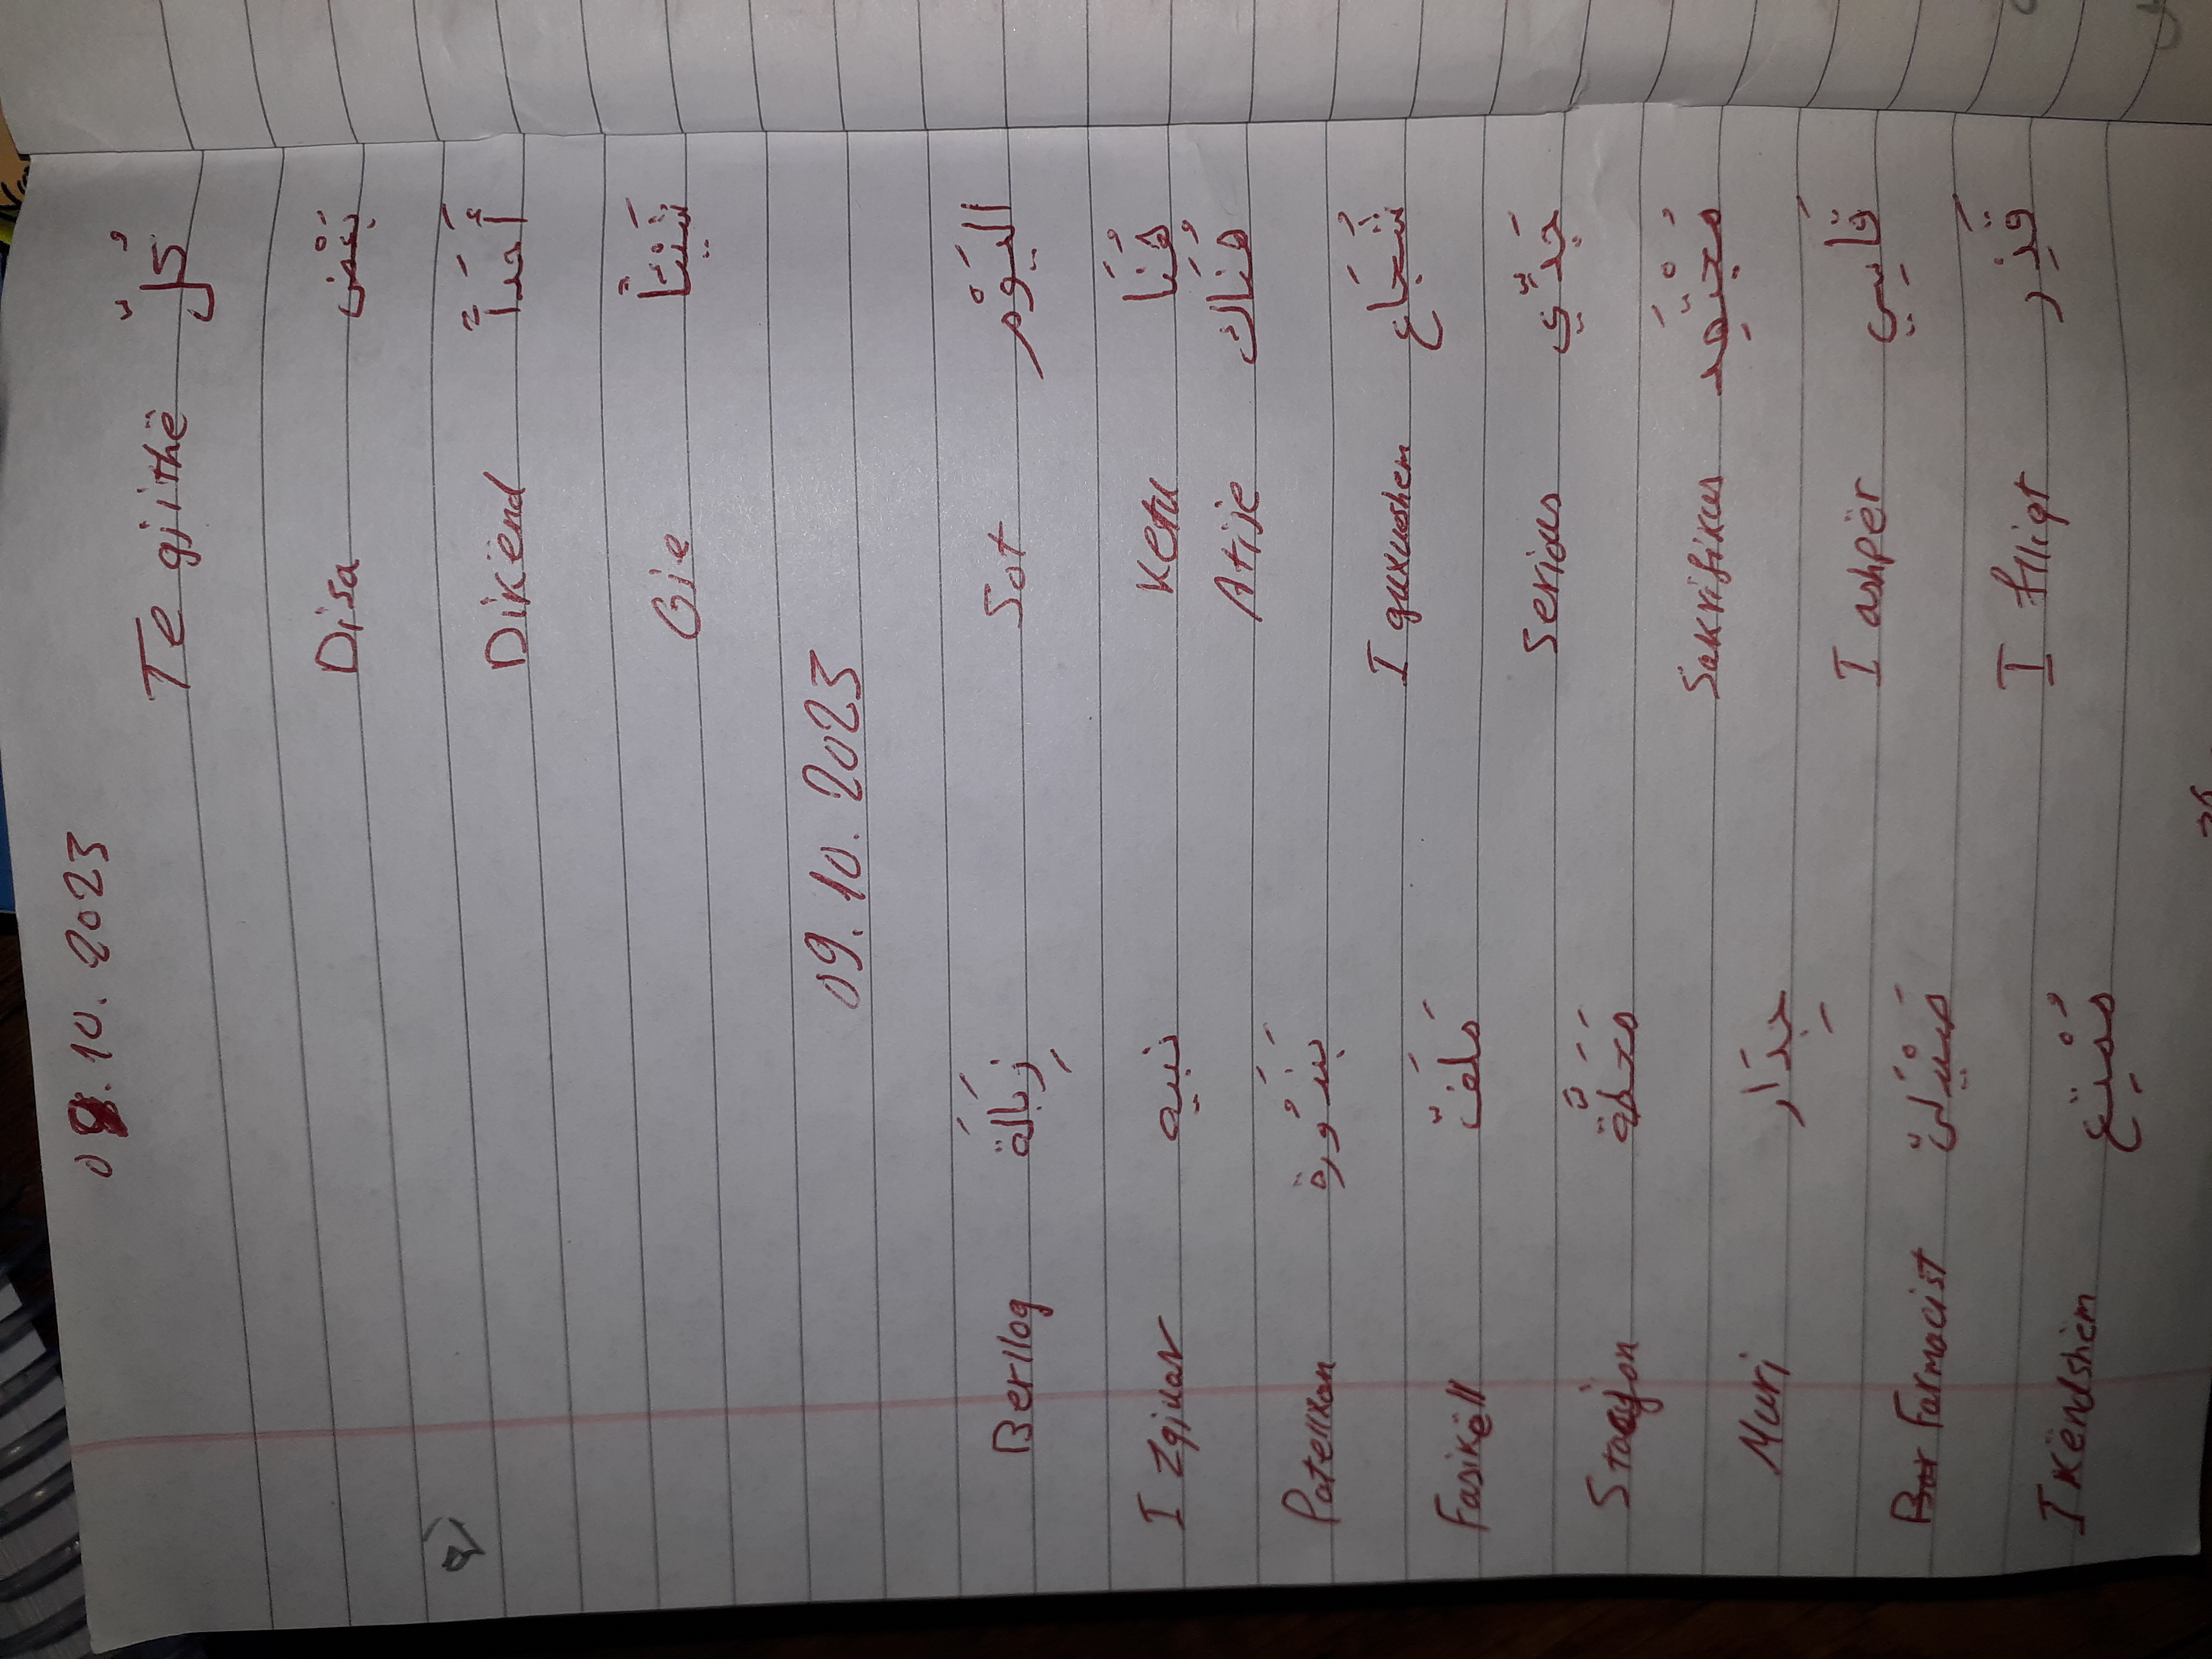 08.10.2023
Te gjithë كُلّ
Disa بَعْض
Dikënd أَحَداً
Gje شَيْئاً
09.10.2023
Berllog زِبَالَة Sot اليَوْم
I zgjuar نبيه Ketu هُنَا
Atije هُنَاك
Patellxan بَنَدُورَة I guxueshem شُجَاع
Fasikëll مَلَفّ Serious جَدِّي
Stacijon مَحَطَّة Sakrifikus مُجْتَهِد
Muri جِدَار I ashpër قَاسِي
Farmacist صَيْدَلِيّ I flliqt قَذِر
I këndshëm مُمْتِع